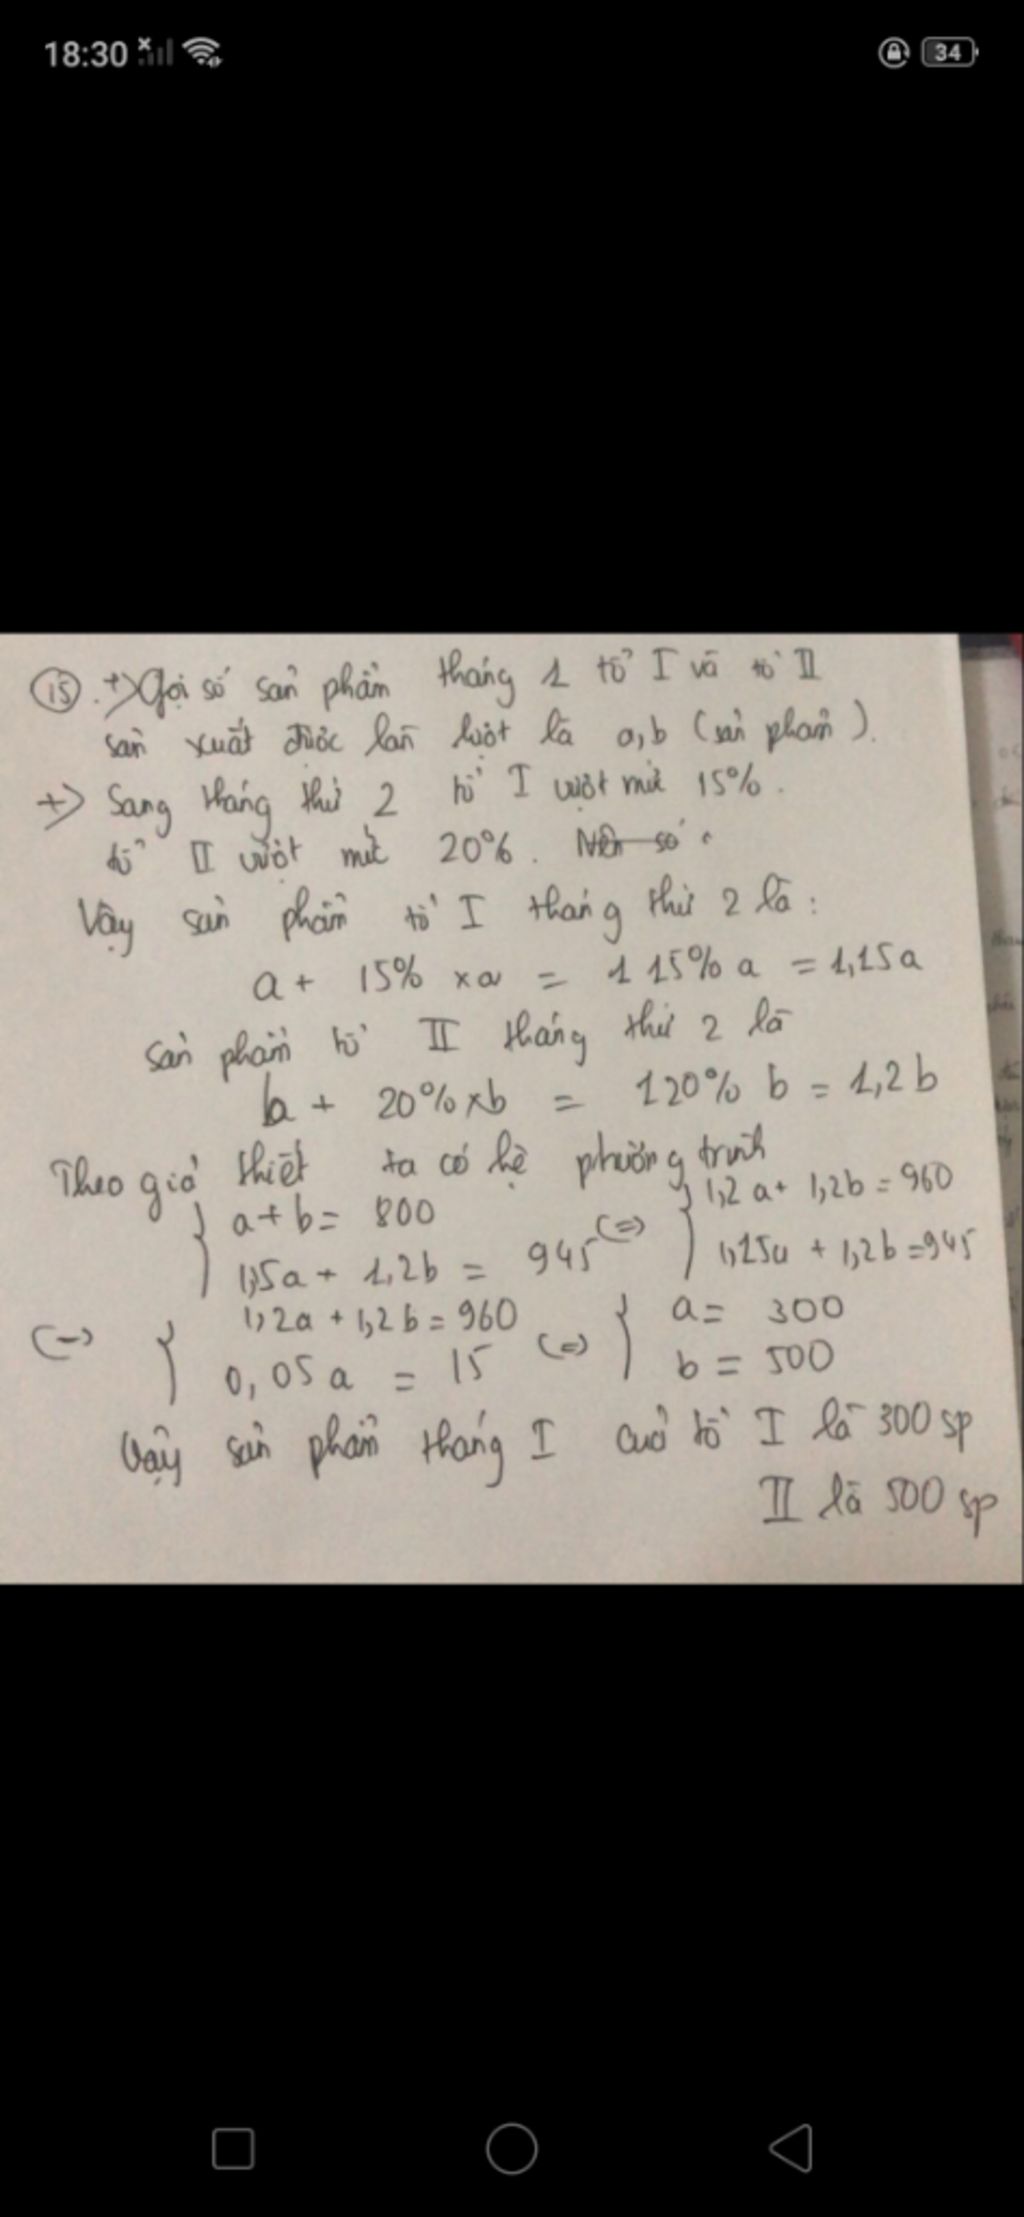 18:30
34
15. +> Gọi số sản phẩm tháng 1 tổ I và tổ II
sản xuất được lần lượt là a, b (sản phẩm).
+> Sang tháng thứ 2 tổ I vượt mức 15%.
tổ II vượt mức 20%. Nên số
Vậy sản phẩm tổ I tháng thứ 2 là:
a + 15% × a = 115% a = 1,15a
sản phẩm tổ II tháng thứ 2 là
b + 20% × b = 120% b = 1,2b
Theo giả thiết ta có hệ phương trình
{ a + b = 800
1,15a + 1,2b = 945
(=) { 1,2a + 1,2b = 960
1,15a + 1,2b = 945
(=) { 1,2a + 1,2b = 960
0,05a = 15
(=) { a = 300
b = 500
Vậy sản phẩm tháng I của tổ I là 300 sp
II là 500 sp